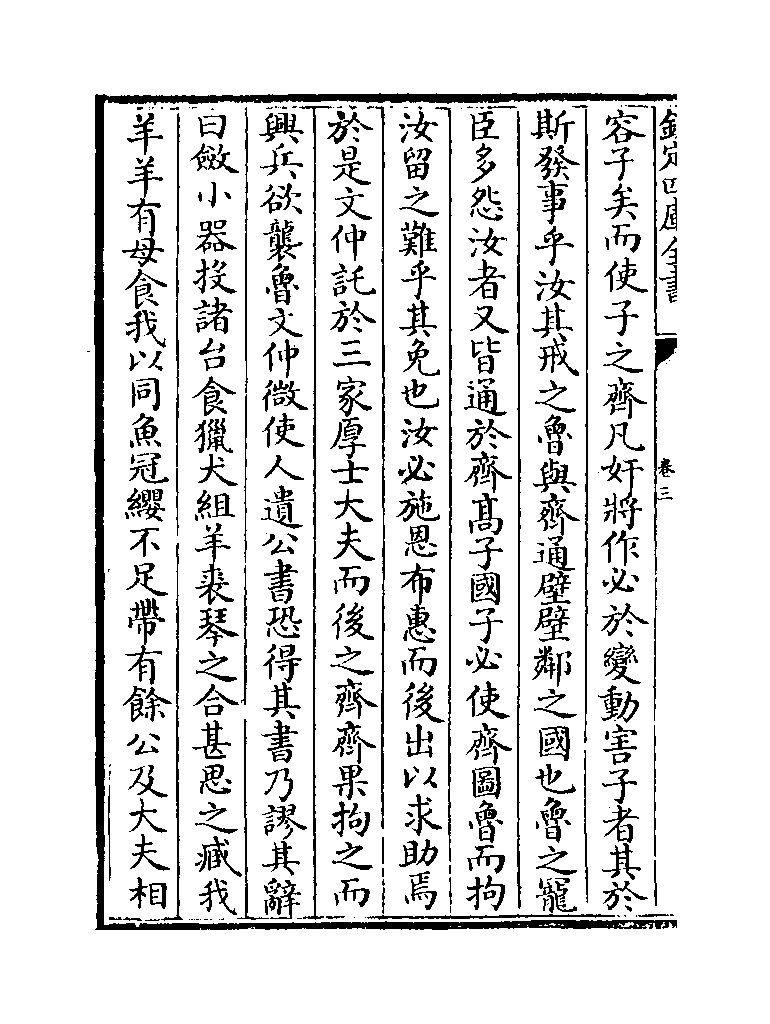 欽定四庫全書
卷三
容子矣而使子之齊凡奸將作必於變動害子者其於
斯發事乎汝其戒之魯與齊通壁壁鄰之國也魯之寵
臣多怨汝者又皆通於齊髙子國子必使齊圖魯而拘
汝留之難乎其免也汝必施恩布惠而後出以求助焉
於是文仲託於三家厚士大夫而後之齊齊果拘之而
興兵欲襲魯文仲微使人遺公書恐得其書乃謬其辭
曰斂小器投諸台食獵犬組羊裘琴之合甚思之臧我
羊羊有母食我以同魚冠纓不足帶有餘公及大夫相